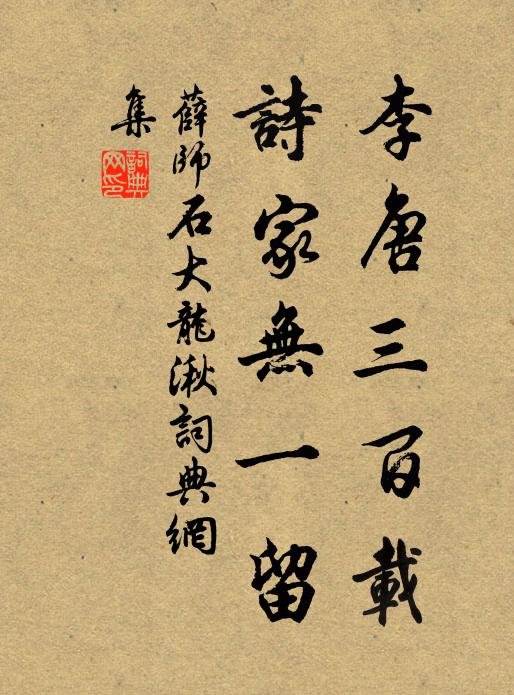 李唐三百載
詩家無一留
薛師石大龍湫詞典網
集
詞典網印